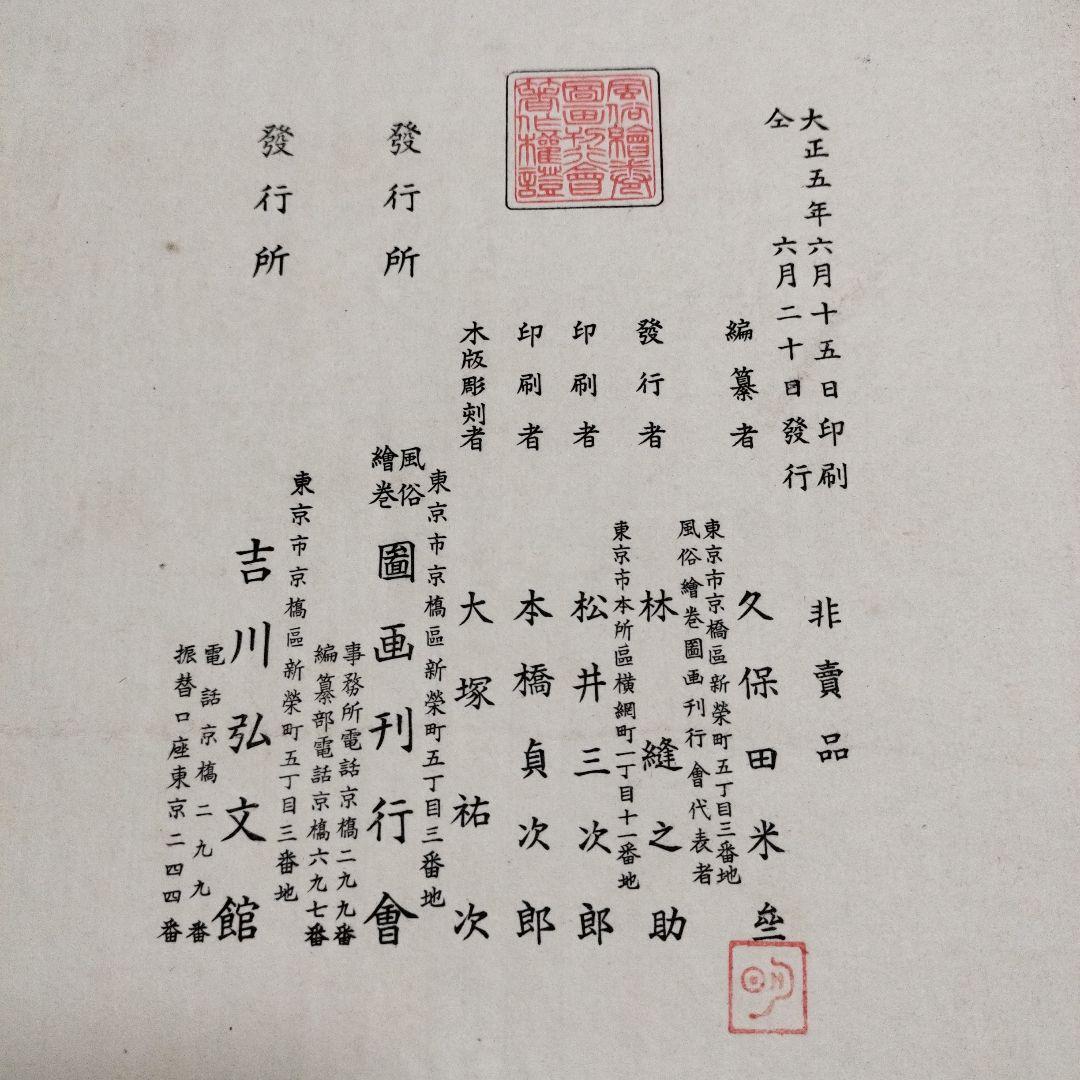 大正五年六月十五日印刷
仝 六月二十日發行
非賣品
編纂者 久保田米
東京市京橋區新榮町五丁目三番地
風俗繪巻圖画刊行會代表者
發行者 林縫之助
東京市本所區横網町一丁目十一番地
印刷者 松井三次郎
印刷者 本橋貞次郎
木版彫刻者 大塚祐次
風俗繪巻圖画刊行會著作權證
東京市京橋區新榮町五丁目三番地
發行所 風俗繪巻圖画刊行會
事務所電話京橋二九九番
編纂部電話京橋六九七番
東京市京橋區新榮町五丁目三番地
發行所 吉川弘文館
電話京橋二九九番
振替口座東京二四四番